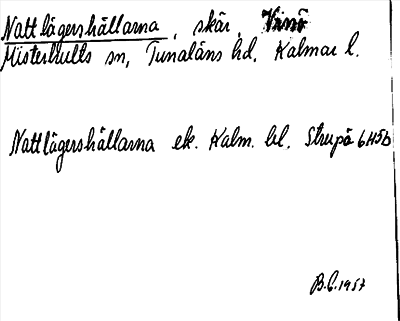 Nattlägershällarna, skär,
Misterhults sn, Tunaläns hd. Kalmar l.
Nattlägershällarna ek. Kalm. bl. Strupö 6H5b
B.C. 1957